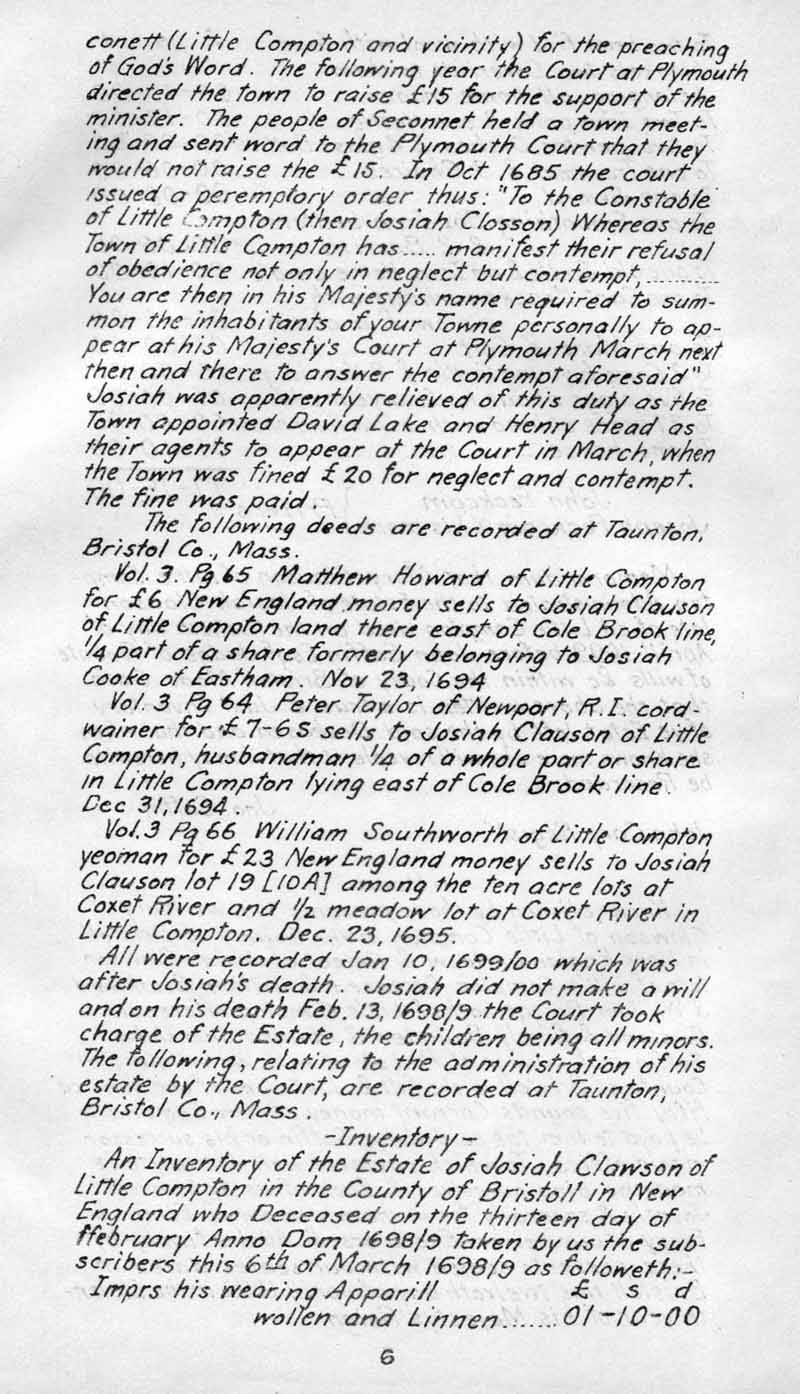 conett (Little Compton and vicinity) for the preaching
of God's Word. The following year the Court at Plymouth
directed the town to raise £15 for the support of the
minister. The people of Seconnet held a town meet-
ing and sent word to the Plymouth Court that they
would not raise the £15. In Oct 1685 the court
issued a peremptory order thus: "To the Constable
of Little Compton (then Josiah Closson) Whereas the
Town of Little Compton has..... manifest their refusal
of obedience not only in neglect but contempt,..........
You are then in his Majesty's name required to sum-
mon the inhabitants of your Towne personally to ap-
pear at his Majesty's Court at Plymouth March next
then and there to answer the contempt aforesaid"
Josiah was apparently relieved of this duty as the
Town appointed David Lake and Henry Head as
their agents to appear at the Court in March, when
the Town was fined £20 for neglect and contempt.
The fine was paid.
The following deeds are recorded at Taunton,
Bristol Co., Mass.
Vol. 3. Pg 65 Matthew Howard of Little Compton
for £6 New England money sells to Josiah Clauson
of Little Compton land there east of Cole Brook line,
1/4 part of a share formerly belonging to Josiah
Cooke of Eastham. Nov 23, 1694
Vol. 3 Pg 64 Peter Taylor of Newport, R.I. cord-
wainer for £7-6S sells to Josiah Clauson of Little
Compton, husbandman 1/4 of a whole part or share
in Little Compton lying east of Cole Brook line.
Dec 31, 1694.
Vol. 3 Pg 66 William Southworth of Little Compton,
yeoman for £23 New England money sells to Josiah
Clauson lot 19 [10A] among the ten acre lots at
Coxet River and 1/2 meadow lot at Coxet River in
Little Compton. Dec. 23, 1695.
All were recorded Jan 10, 1699/00 which was
after Josiah's death. Josiah did not make a will
and on his death Feb. 13, 1698/9 the Court took
charge of the Estate, the children being all minors.
The following, relating to the administration of his
estate by the Court, are recorded at Taunton,
Bristol Co., Mass.
-Inventory-
An Inventory of the Estate of Josiah Clawson of
Little Compton in the County of Bristoll in New
England who Deceased on the thirteen day of
ffebruary Anno Dom 1698/9 taken by us the sub-
scribers this 6th of March 1698/9 as followeth:-
Imprs his wearing Apparill £ s d
wollen and Linnen.......01-10-00
6